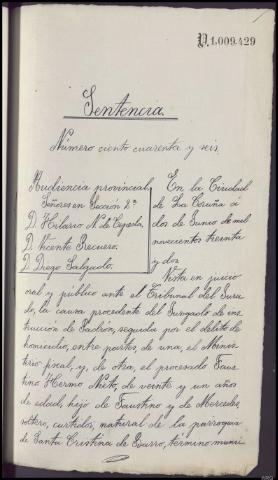 D.1.009.429
Sentencia.
Número ciento cuarenta y seis.
Audiencia provincial
Señores en Sección 2ª
D. Hilario N. de Cepeda.
D. Vicente Recuero.
D. Diego Salgado.
En la Ciudad
de La Coruña á
dos de Junio de mil
novecientos treinta
y dos
Vista en juicio
oral y público ante el Tribunal del Jura-
do, la causa procedente del Juzgado de ins-
trucción de Padrón, seguida por el delito de
homicidio, entre partes, de una, el Minis-
terio fiscal, y, de otra, el procesado Faus-
tino Hermo Nieto, de veinte y un años
de edad, hijo de Faustino y de Mercedes,
soltero, curtidor, natural de la parroquia
de Santa Cristina de Barro, término muni-